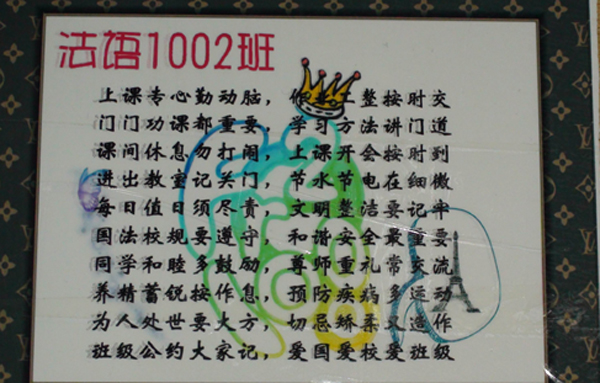 法语1002班
上课专心勤动脑，作业工整按时交
门门功课都重要，学习方法讲门道
课间休息勿打闹，上课开会按时到
进出教室记关门，节水节电在细微
每日值日须尽责，文明整洁要记牢
国法校规要遵守，和谐安全最重要
同学和睦多鼓励，尊师重礼常交流
养精蓄锐按作息，预防疾病多运动
为人处世要大方，切忌矫柔又造作
班级公约大家记，爱国爱校爱班级